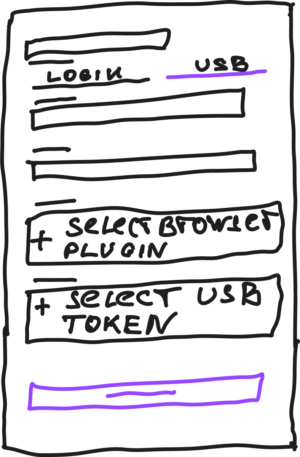 LOGIN USB
+ SELECT BROWSER
PLUGIN
+ SELECT USB
TOKEN